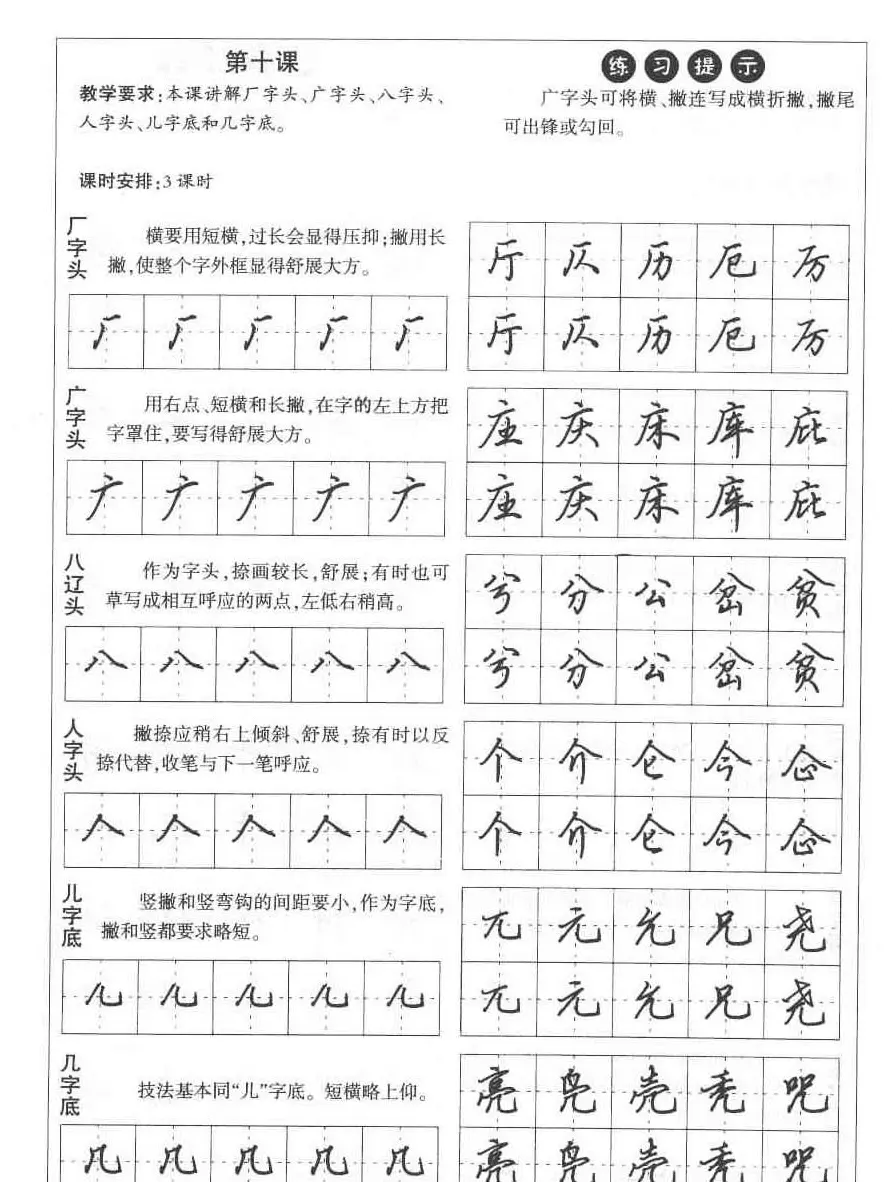 第十课
教学要求:本课讲解厂字头、广字头、八字头、
人字头、儿字底和几字底。
课时安排:3课时
练习提示
广字头可将横、撇连写成横折撇,撇尾
可出锋或勾回。
厂字头
横要用短横,过长会显得压抑;撇用长
撇,使整个字外框显得舒展大方。
厂 厂 厂 厂 厂
厅 仄 历 厄 厉
厅 仄 历 厄 厉
广字头
用右点、短横和长撇,在字的左上方把
字罩住,要写得舒展大方。
广 广 广 广 广
座 庆 床 库 庇
座 庆 床 库 庇
八辽头
作为字头,捺画较长,舒展;有时也可
草写成相互呼应的两点,左低右稍高。
八 八 八 八 八
兮 分 公 岔 贫
兮 分 公 岔 贫
人字头
撇捺应稍右上倾斜、舒展,捺有时以反
捺代替,收笔与下一笔呼应。
人 人 人 人 人
个 介 仓 今 企
个 介 仓 今 企
儿字底
竖撇和竖弯钩的间距要小,作为字底,
撇和竖都要求略短。
儿 儿 儿 儿 儿
兀 元 允 兄 尧
兀 元 允 兄 尧
几字底
技法基本同“儿”字底。短横略上仰。
几 几 几 几 几
亮 凫 壳 秃 咒
亮 凫 壳 秃 咒